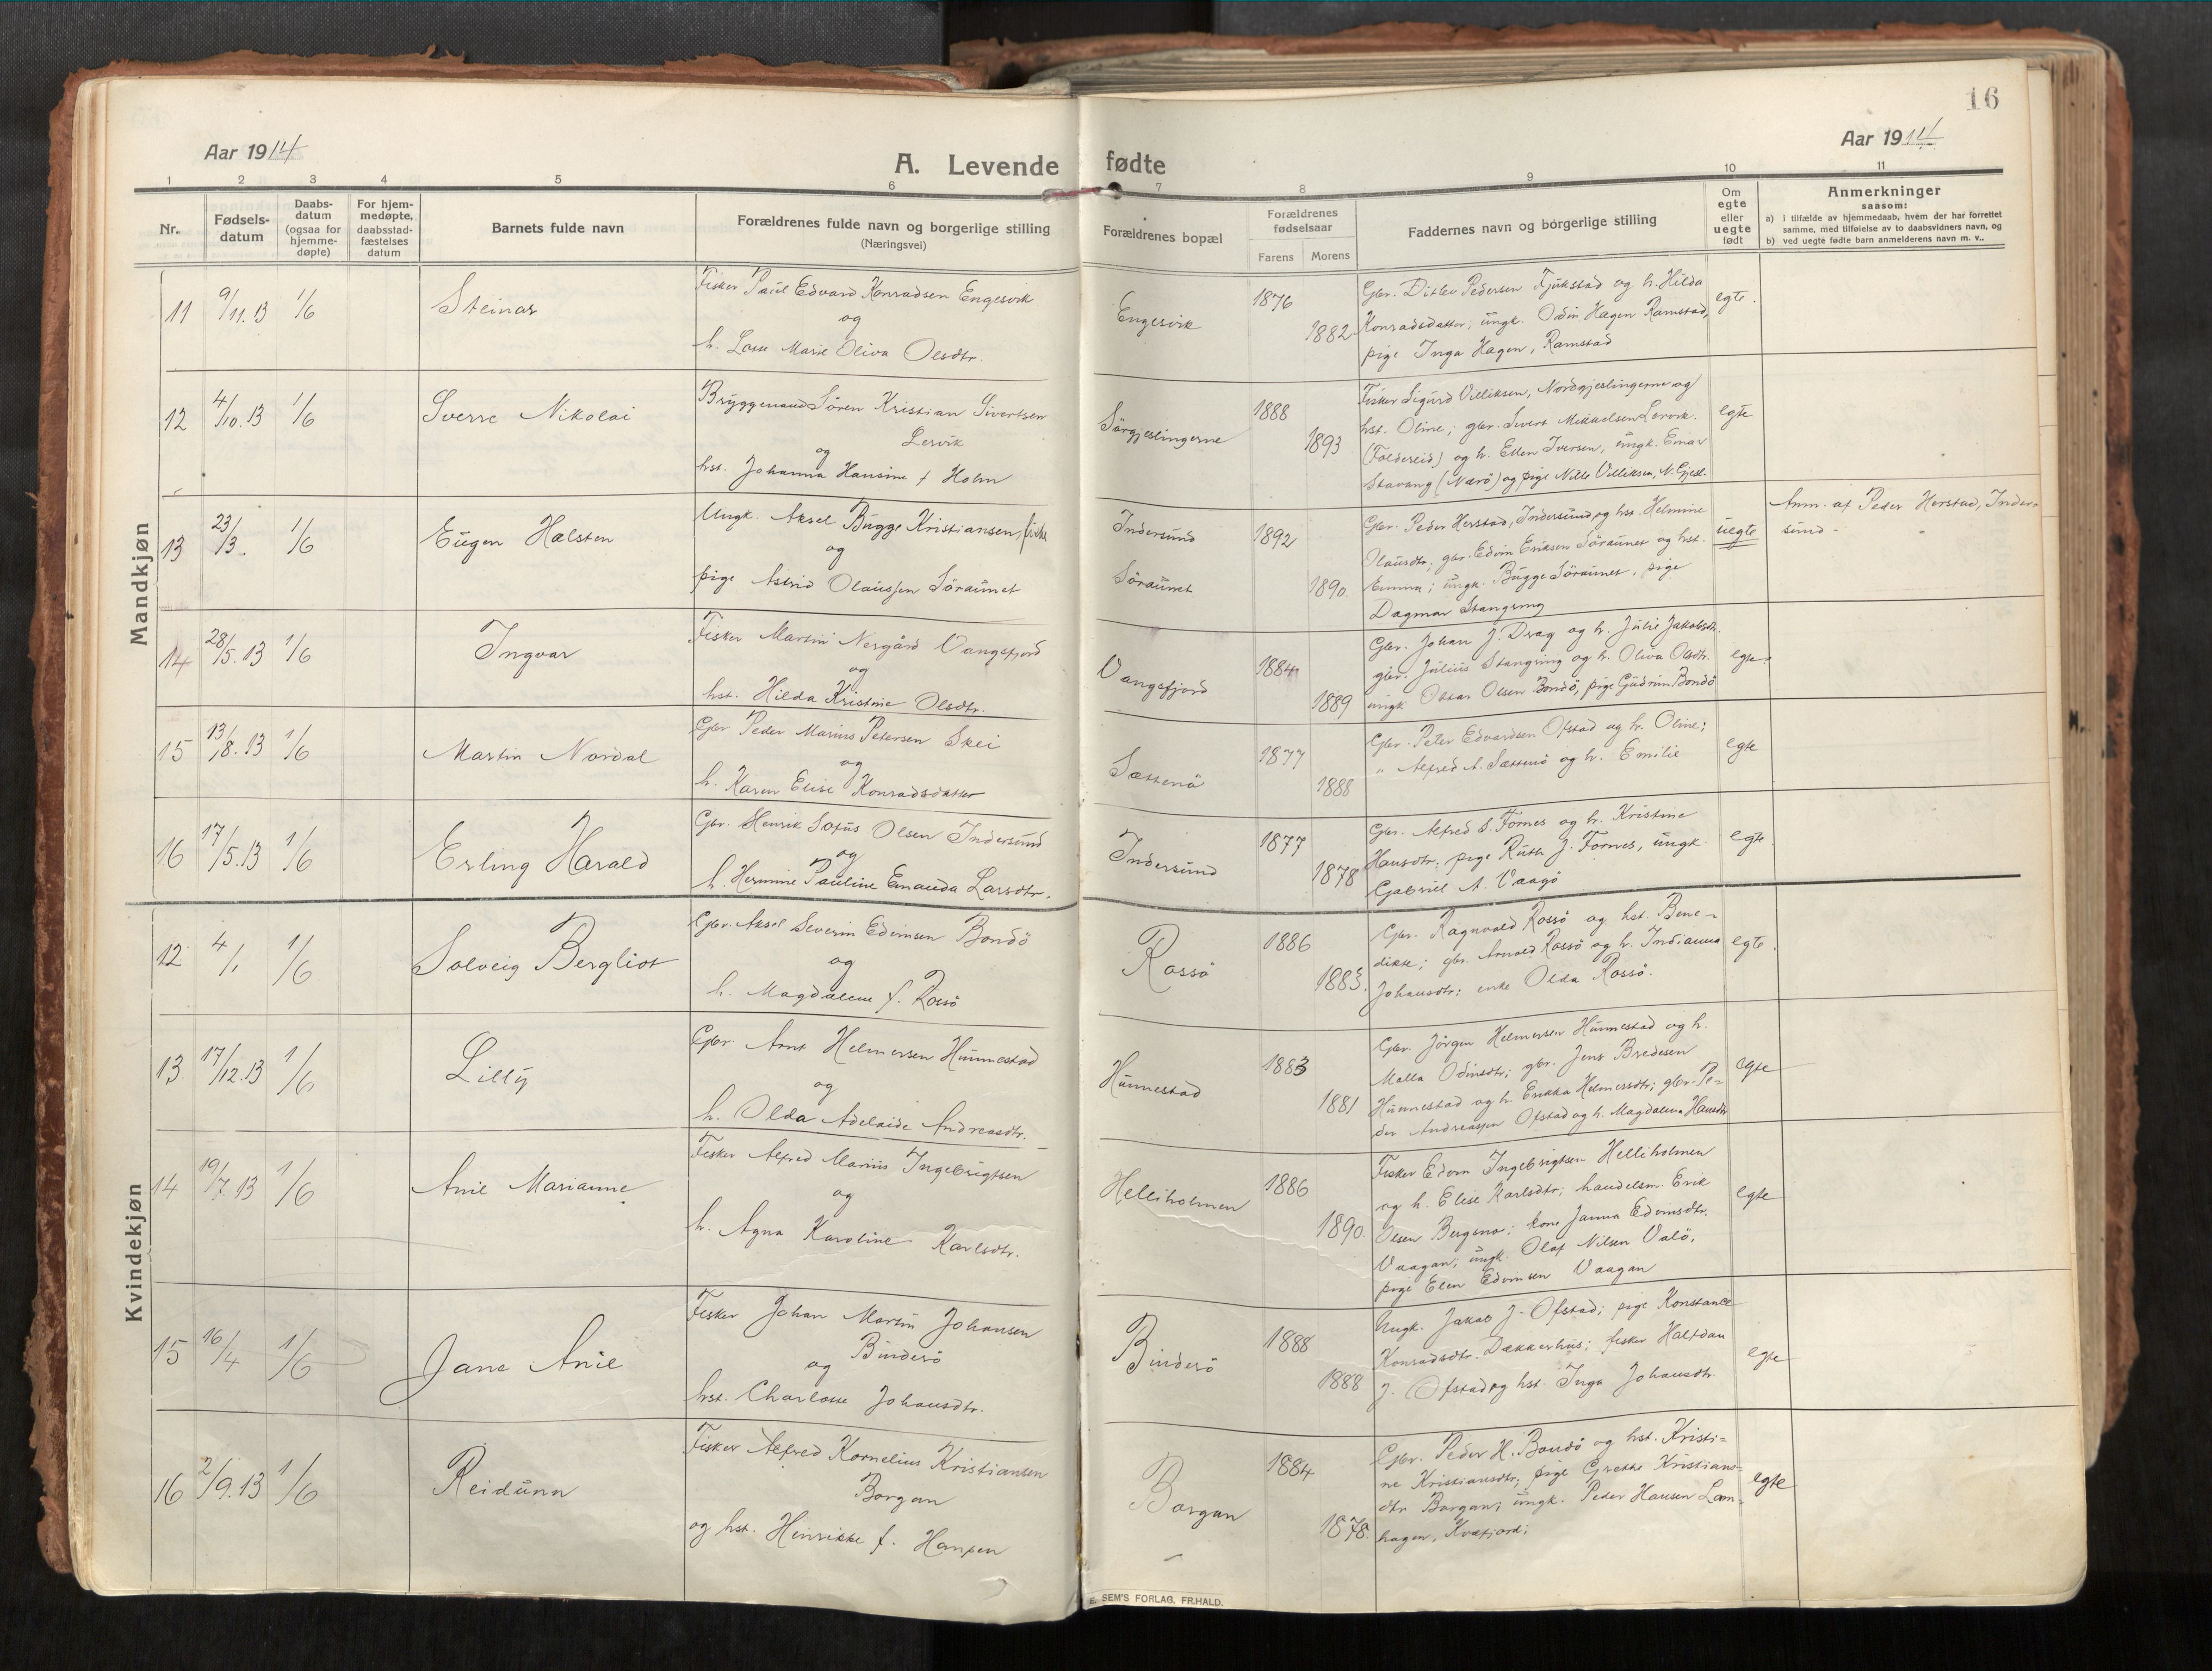 16
Aar 1914
Aar 1914
A. Levende fødte
1 2 3 4 5 6 7 8 9 10 11
Nr.
Fødsels-
datum
Daabs-
datum
(ogsaa for
hjemme-
døpte)
For hjem-
medøpte,
daabsstad-
fæstelses
datum
Barnets fulde navn
Forældrenes fulde navn og borgerlige stilling
(Næringsvei)
Forældrenes bopæl
Forældrenes
fødselsaar
Farens Morens
Faddernes navn og borgerlige stilling
Om
egte
eller
uegte
født
Anmerkninger
saasom:
a) i tilfælde av hjemmedaab, hvem der har forrettet
samme, med tilføielse av to daabsvidners navn, og
b) ved uegte fødte barn anmelderens navn m. v..
Mandkjøn
11 9/11.13 1/6 Steinar
Fisker Paul Edvard Konradsen Engesvik
og
h. Lasse Marie Oliva Olsdtr.
Engesvik 1876 1882
Gbr. Ditlev Pedersen Fjukstad og h. Hilda
Konradsdatter; ungk. Odin Hagen Ramstad,
pige Inga Hagen, Ramstad
egte.
12 4/10.13 1/6 Sverre Nikolai
Bryggemand Sören Kristian Sivertsen
Lervik
og
hst. Johanna Hansine f Holm
Sörgjeslingerne 1888 1893
Fisker Sigurd Villiksen, Nordgjeslingerne og
hst. Oline; gbr. Sivert Mikkaelsen Lervik.
(Foldereid) og h. Ellen Iversen, ungk. Einar
Stavang (Nærö) og pige Nille Villiksen, N. Gjesl.
egte
13 23/3. 1/6 Eugen Halsten
Ungk. Aksel Bugge Kristiansen, fisker
og
pige Astrid Olaussen Söraunet
Indersund
Söraunet
1892 1890
Gbr. Peder Herstad, Indersund og hst. Helmine
Olausdtr; gbr. Edvin Eriksen Söraunet og hst.
Emma; ungk. Bugge Söraunet, pige
Dagmar Stangring
uegte
Anm. af Peder Herstad, Inder-
sund -
14 28/5.13 1/6 Ingvar
Fisker Martin Nergård Vangsfjord
og
hst. Hilda Kristine Olsdtr.
Vangsfjord 1884 1889
Gbr. Johan J. Drag og h. Julie Jakobsdtr.
gbr. Julius Stangring og h. Oliva Olsdtr.
ungk Oskar Olsen Bondö, pige Gudrun Bondö
egte.
15 13/8.13 1/6 Martin Nordal
Gbr Peder Marius Petersen Skei
og
h. Karen Elise Konradsdatter
Sættenö 1877 1888
Gbr. Peter Edvardsen Ofstad og h. Oline;
" Alfred A. Sættenö og h. Emilie
egte
16 17/5.13 1/6 Erling Harald
Gbr. Henrik Sofus Olsen Indersund
og
h. Hermine Pauline Emanda Larsdtr.
Indersund 1877 1878
Gbr. Alfred S. Fornes og h. Kristine
Hansdtr; pige Ruth J. Fornes, ungk.
Gabriel A. Vaagö
egte
Kvindekjøn
12 4/1 1/6 Solveig Bergliot
Gbr. Aksel Severin Edvinsen Bondö
og
h. Magdalene f. Rossö
Rossö 1886 1883.
Gbr. Ragnvald Rossö og hst. Bene-
dikte; gbr. Arnold Rossö og h. Indianna
Johansdtr; enke Olda Rossö.
egte.
13 17/12.13 1/6 Lilly
Gbr. Arnt Helmersen Hunnestad
og
h. Olda Adelaide Andreasdtr.
Hunnestad 1883 1881
Gbr. Jörgen Helmersen Hunnestad og h.
Malla Odinsdtr; gbr. Jens Bredesen
Hunnestad og h. Erikka Helmersdtr; gbr. Pe-
der Andreassen Ofstad og h. Magdalena Hansdtr
egte
14 19/7.13 1/6 Anie Marianne
Fisker Alfred Marius Ingebrigtsen
og
h. Agna Karoline Karlsdtr.
Helliholmen 1886 1890.
Fisker Edvin Ingebrigtsen Helliholmen
og h. Elise Karlsdtr; handelsm. Erik
Olsen Bergsno; kone Janna Edvinsdtr.
Vaagan; ungk. Olaf Nilsen Valö,
pige Elen Edvinsen Vaagan
egte
15 16/4 1/6 Jane Anie
Fisker Johan Martin Johansen
Binderö
og
hst. Charlotte Johansdtr.
Binderö 1888 1888
Ungk. Jakob J. Ofstad; pige Konstance
Konradsdtr. Dækkerhus; fisker Halfdan
J. Ofstad og hst. Inga Johansdtr.
egte
16 2/9.13 1/6 Reidunn
Fisker Alfred Kornelius Kristiansen
Borgan
og hst. Henrikke f. Hansen
Borgan 1884 1878.
Gbr. Peder H. Bondö og hst. Kristi-
ne Kristiansdtr; pige Grethe Kristians-
dtr Borgan; ungk. Peder Hansen Lam-
hagen, Kvæfjord;
egte
E. SEM'S FORLAG, FR.HALD.